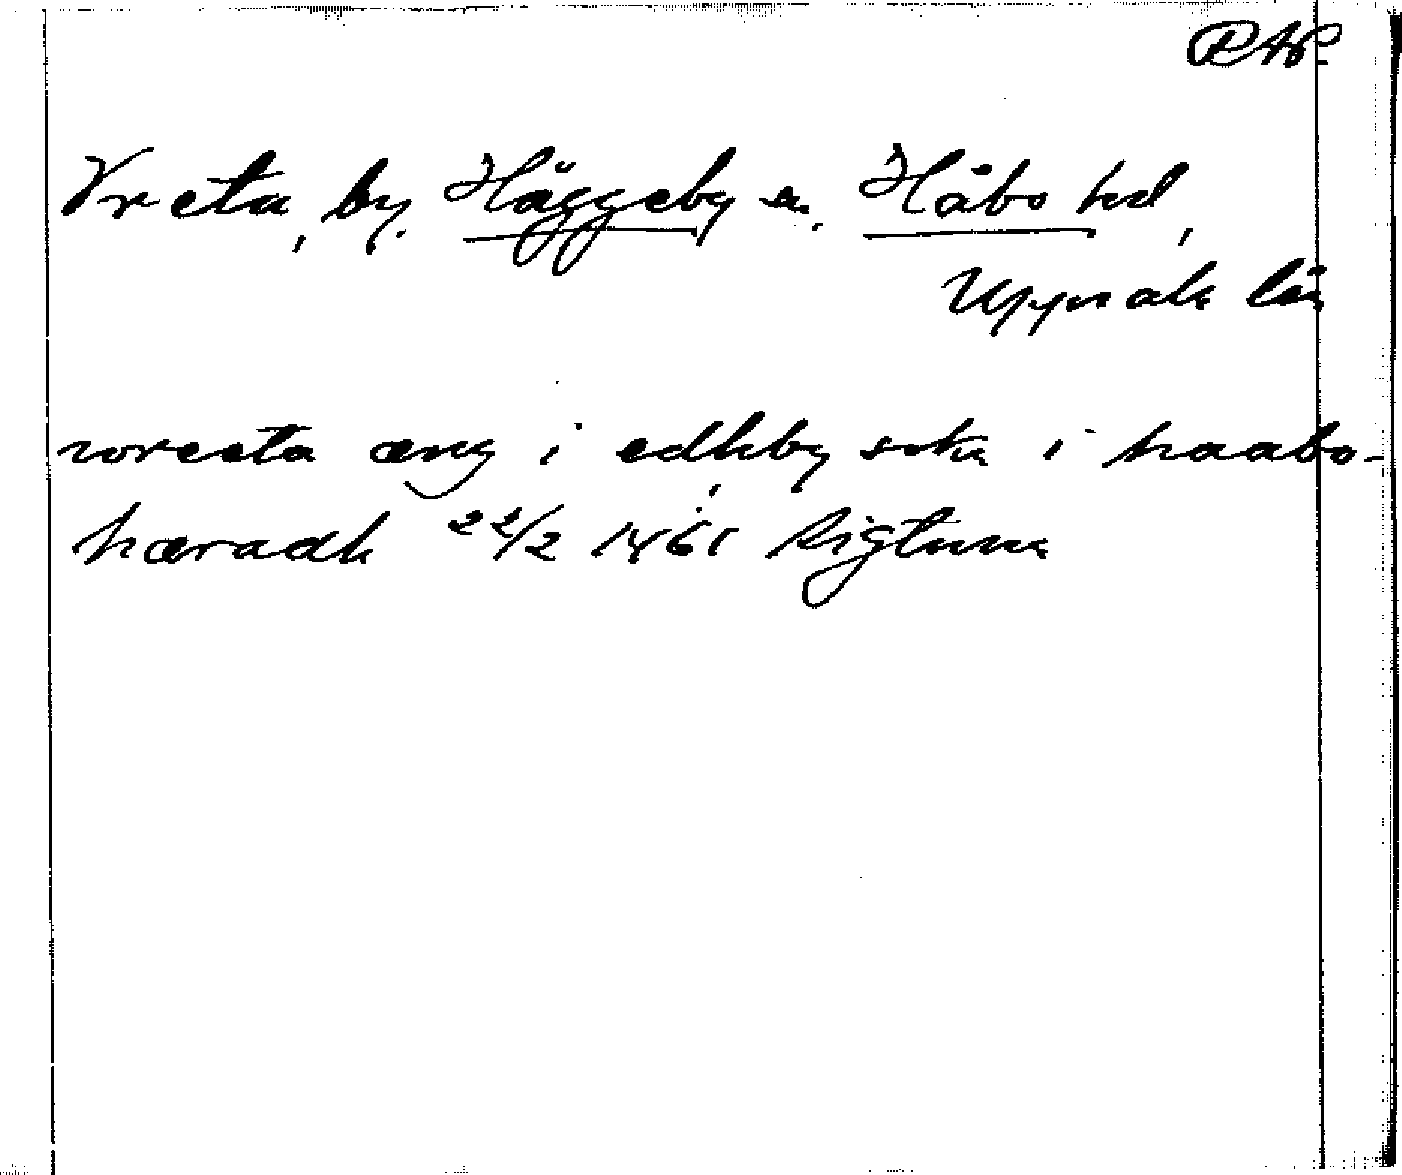 RAP.
Vreta, by, Häggeby sn, Håbo hd,
Uppsala län
wreeta æng i edhby sokn i haabo-
hæradh, 22/2 1461 Sigtuna